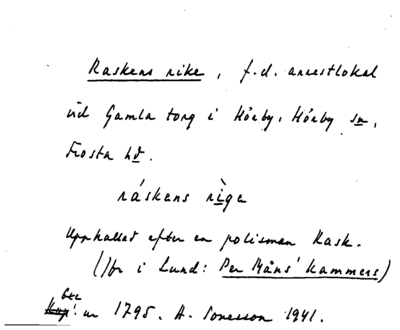 Raskens rike, f.d. arrestlokal
vid Gamla torg i Hörby, Hörby sn,
Frosta hd.
ráskens rìge
Uppkallad efter en polisman Rask.
(Jfr i Lund: Per Måns' kammers)
ur 1795. A. Sonesson 1941.